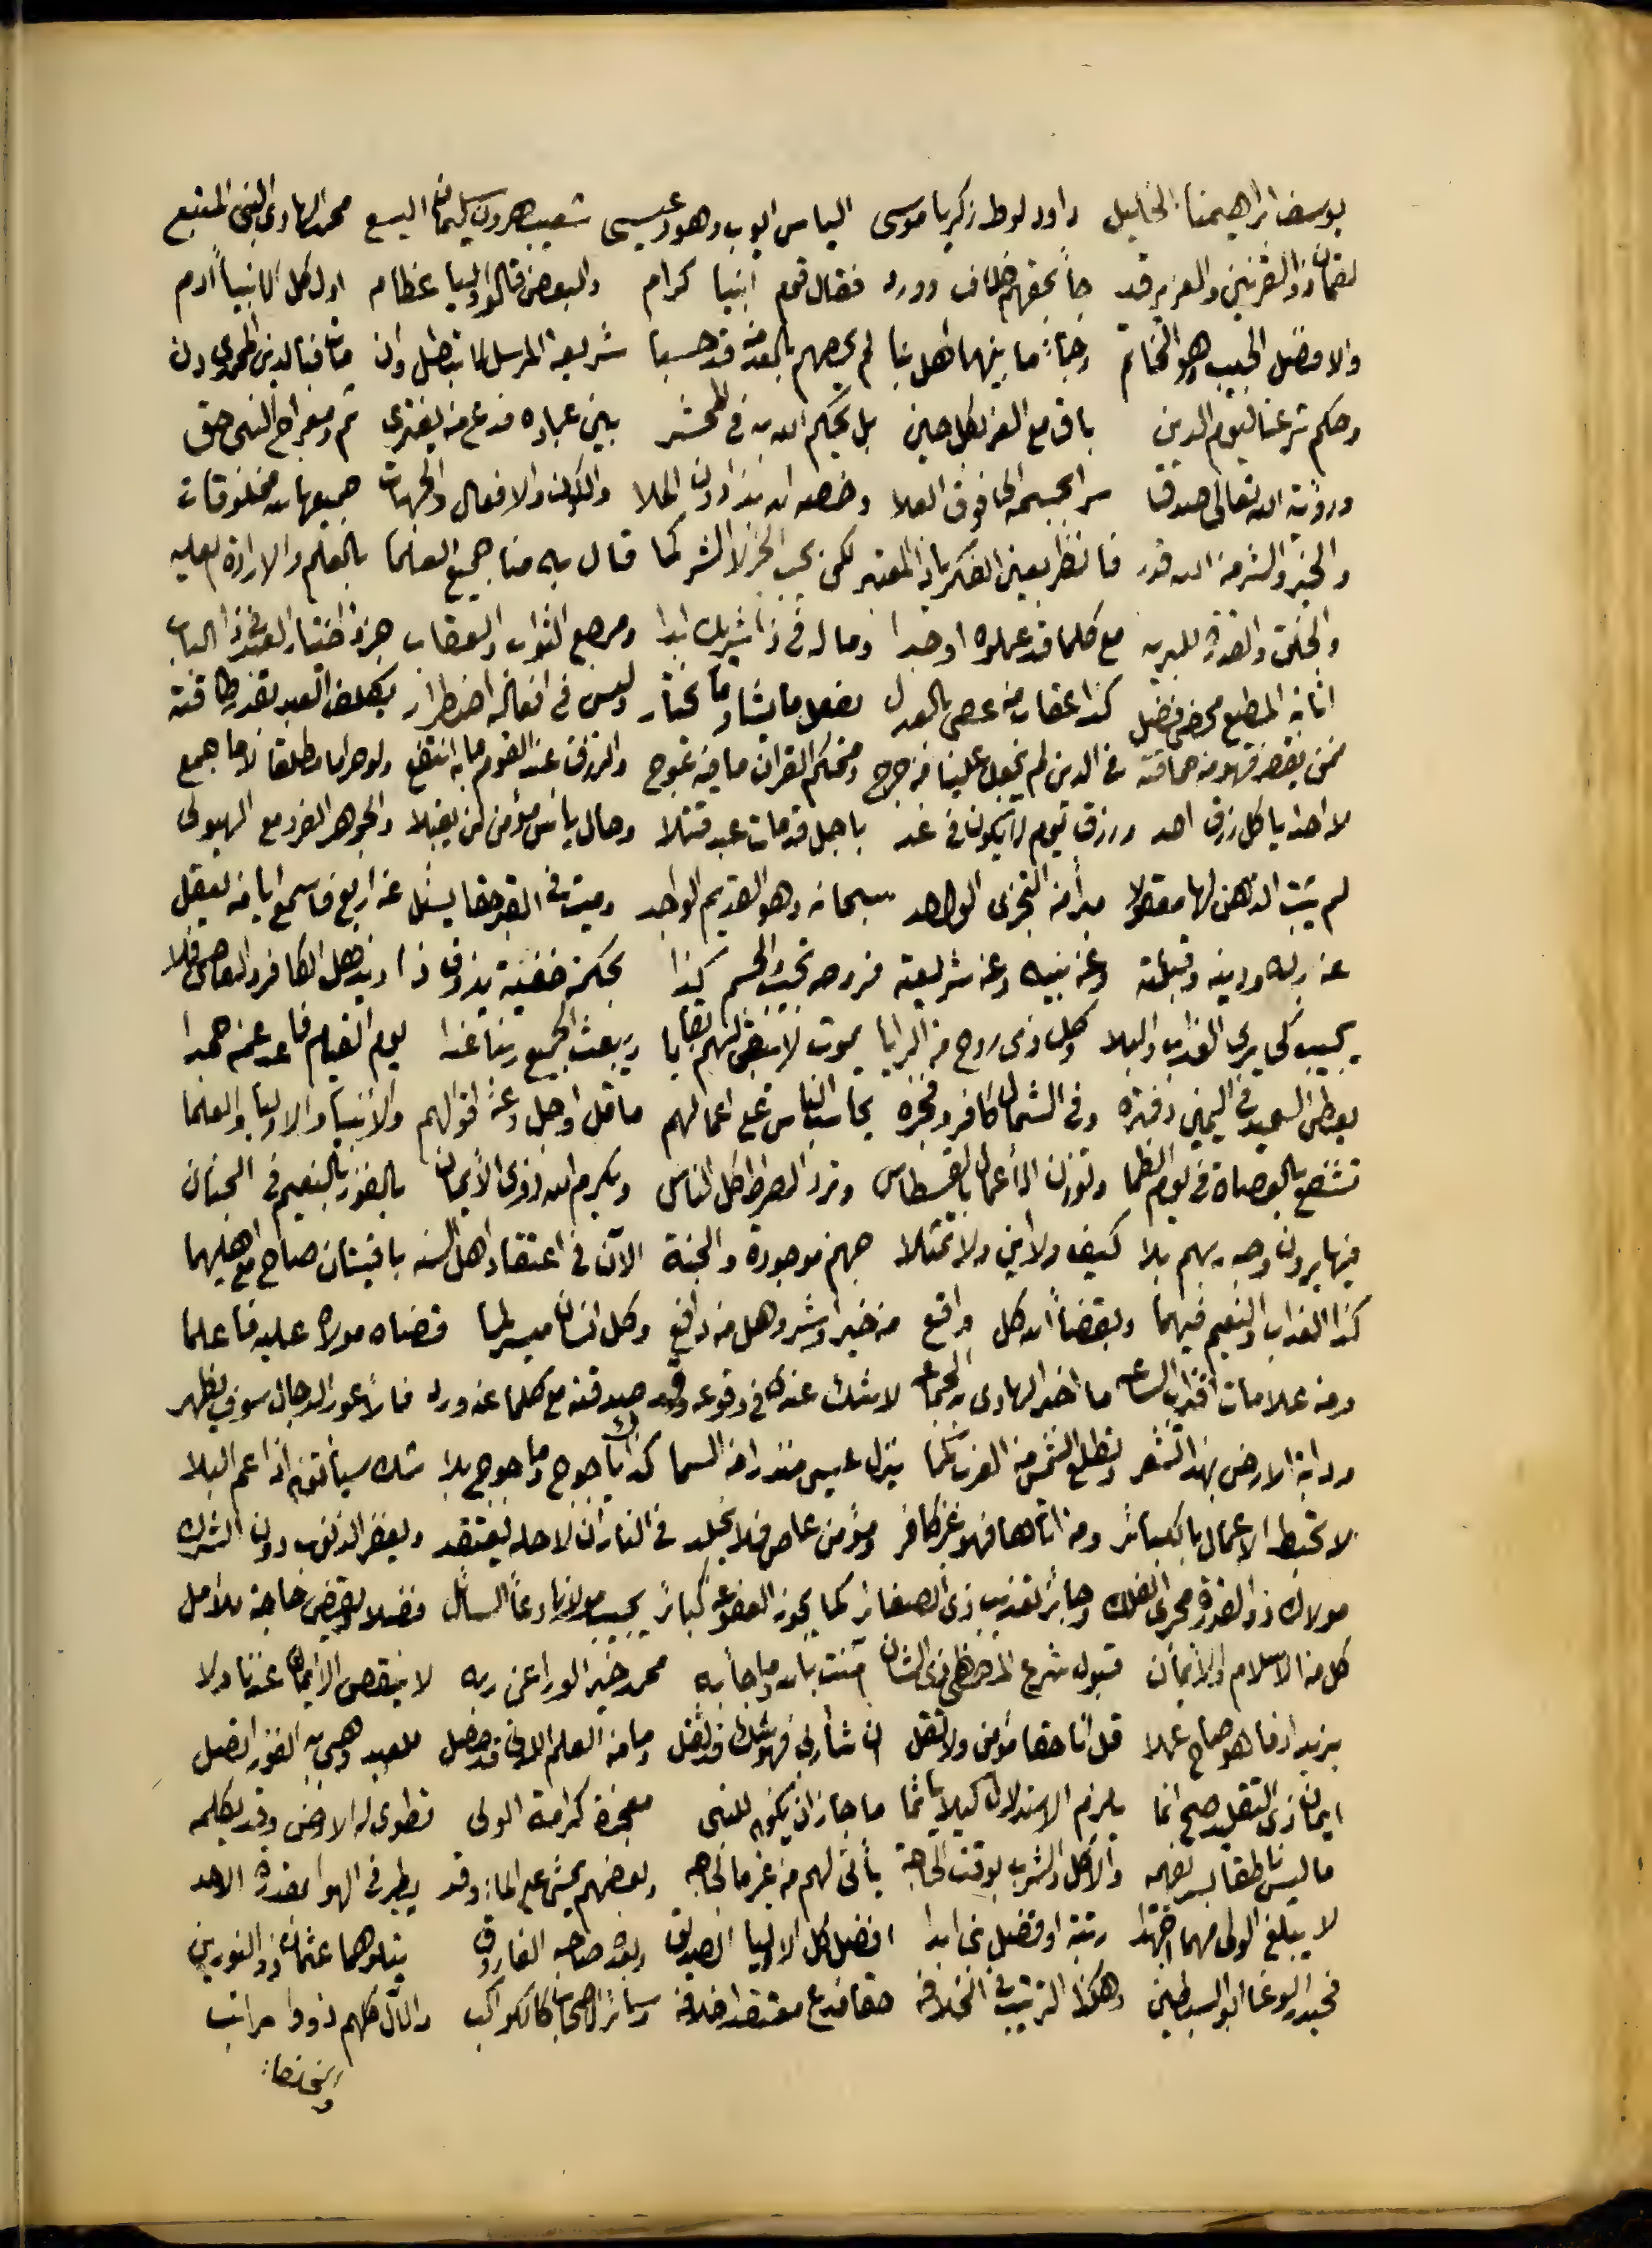 يوسف ابراهيمنا الخليل داود لوط زكريا موسى الياس ايوب وهود عيسى شعيب هرون سليمان اليسع محمد الهادى النبى المتبع
لقمان ذو القرنين والعزير قد جاً بحقهم خلاف وورد فقال قوم انبيا كرام والبعض قالوا اوليا عظام اول كل الانبياً ادم
والافضل الحبيب وهو الخاتم وجاً ما بينهما اهل نبا لم يحصهم بالعد من قد حسبا شريعة المرسل لا تبطل وان مات فينا لدين احمدى دن
وحكم شرعنا ليوم الدين باق مع العز لكل حين بل يحكم الله به فى المحشر بين عباده فدع من يفترى ثم ومعراج النبى حق
ورؤية الله تعالى صدق سر بجسمه الى فوق العلا وخصه الله بذا دون الملا والكون والافعال والجهات جميعها لله مخلوقات
والخير والشر من الله قدر فانظر بعين الفكر ياذا المعتبر لكن يحب الخير لا الشر كما قال به منا جميع العلما بالعلم والارادة العليه
والخلق والقدرة للبريه مع كلما قد عملوه اوجدا وما له فى ذا شريك ابدا ومرجع الثواب والعقاب جزء اختيار العبد فى ذا الباب
اثابة المطيع محض فضل كذا عقاب من عصى بالعدل يفعل ما يشا وما يختار وليس فى افعاله اضطرار يكلف العبد بقدر طاقته
فمن يقصر فهو من حماقته فى الدين لم يجعل علينا من حرج ومحكم القران ما فيه عوج والرزق عند القوم ما به انتفع ولو حراما مطلقا لا ما جمع
لا احد ياكل رزق احد ورزق يوم لا يكون فى غد باجل قد مات عبد قتلا وحال ياس مؤمن لن يقبلا والجوهر الفرد مع الهيولى
لم يثبت الذهن لها معقولا مبرأ من التجزى الواحد سبحانه وهو القديم الواجد وميت فى القبر حقا يسئل عن اربع فاسمع ايا من يعقل
عن ربه ودينه وقبلته وعن نبيه وعن شريعته فروحه تجيب والجسم كذا بحكمة خفية يذوق ذا ويذهل الكافر والعاصى فلا
يجيب كى يرى العذاب والبلا وكل ذى روح من البرايا يموت لا تبقى لهم بقايا ويبعث الجميع ربنا غدا يوم القيام فاعد عنه حمدا
يعطى السعيد فى اليمين دفتره وفى الشمال كافر وفجره يحاسب الناس على اعمالهم ما قل او جل وعن اقوالهم والانبيا والاوليا والعلما
تشفع بالعصاة فى يوم الظما وتوزن الاعمال بالقسطاس وترد الصراط كل الناس ويكرم الله ذوى الايمان بالفوز بالنعيم فى الجنان
فيها يرون وجه ربهم بلا كيف ولا اين ولا تمثلا جهنم موجودة والجنة الان فى اعتقاد اهل السنه باقيتان صاح مع اهليهما
كذا العذاب والنعيم فيهما وبقضاً الله كل واقع من خير او شر وهل من دافع وكل انسان ميسر لما قضاه مولاه عليه فاعلما
ومن علامات اقتراب الساعه ما اخبر الهادى به الجماعه لا شك عندى فى وقوعه وقد صدقته مع كلما عنه ورد فالاعور الدجال سوف يظهر
ودابة الارض بهذا تشعر وتطلع الشمس من الغرب كما ينزل عيسى منذرا من السما كذاك ياجوج وماجوج بلا شك سياتون اذا عم البلا
لا تحبط الاعمال بالكبائر ومن اتاها فهو غير كافر ومؤمن عاص فلا يخلد فى النار ان لا حله يعتقد ويغفر الذنوب دون الشرك
مولاك ذو القدرة مجرى الفلك وجائز تعذيب ذى الصغائر كما يجوز العفو عن كبائر يجيب مولانا دعاً السائل فضلا ويقضى حاجة للامل
كل من الاسلام والايمان قبول شرع المرتضى ذى الشان امنت بالله وما جاً به محمد خير الورا عن ربه لا ينقص الايمان عندنا ولا
يزيد اذ ما هو صاح عملا قل انا حقا مؤمن ولا تقل ان شاً ربى فهو شك فدثقل وما من العلم اللدنى قد حصل للعبد وهبى به الفوز اتصل
ايمان ذى التقليد صح انما يلزم الاستدلال كيلا ياثما ما جاز ان يكون للنبى معجزة كرامة الولى تطوى له الارض وقد يكلمه
ما ليس ناطقا بسر يفهمه والاكل والشرب بوقت الحاجة يأتى لهم من غير ما لجاجه وبعضهم يمشى على الماء وقد يطير فى الهوا بقدرة الاحد
لا يبلغ الولى مهما اجتهدا رتبة او فضل نبى ابدا افضل كل الاوليا الصديق وبعد صاحبه الفاروق يتلوهما عثمان ذو النورين
فحيدر الوغا ابو السبطين وهكذا الترتيب فى الخلافه حقا فدع معتقدا خلافه وسائر الاصحاب كالكواكب والال كلهم ذووا مراتب